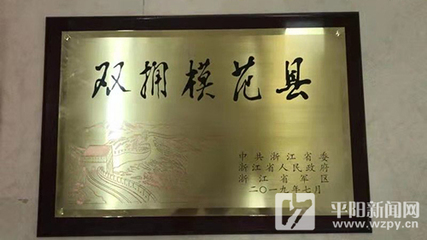 双拥模范县
中共浙江省委
浙江省人民政府
浙江省军区
二〇一九年七月
平阳新闻网
www.wzpy.cn